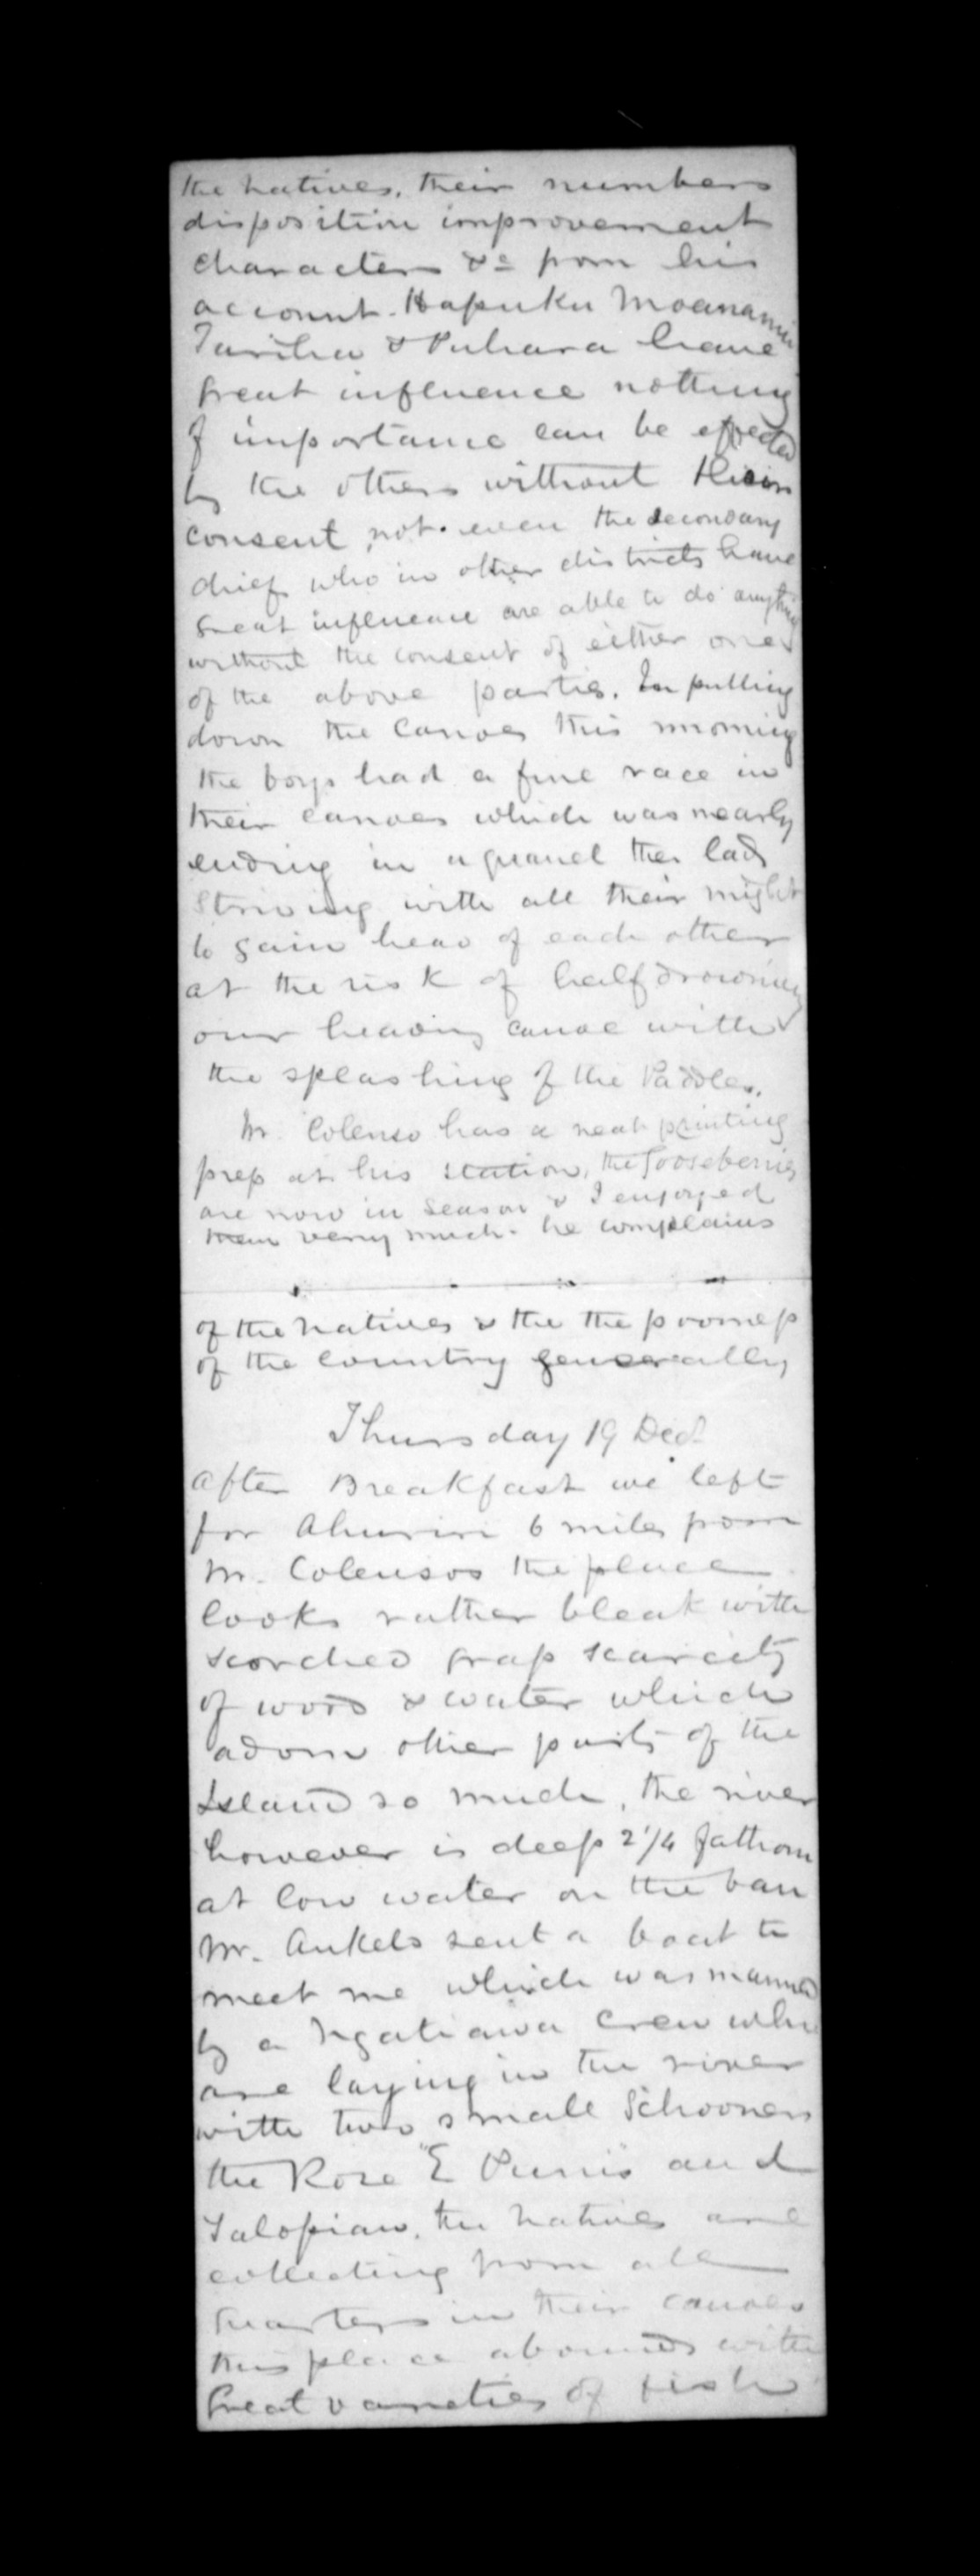 the natives, their numbers
disposition improvement
character &c from his
account. Hapuku Moananui
Tariha & Puhara have
great influence nothing
of importance can be effected
by the others without their
consent, not even the secondary
chiefs who in other districts have
great influence are able to do anything
without the consent of either one
of the above parties. In pulling
down the canoes this morning
the boys had a fine race in
their canoes which was nearly
ending in a quarrel the lads
striving with all their might
to gain head of each other
at the risk of half drowning
our heavy canoe with
the splashing of the Paddles.
Mr. Colenso has a neat printing
press at his station, the Gooseberries
are now in season & I enjoyed
them very much. he complains
of the natives & the the poorness
of the country generally
Thursday 19 Decr
After Breakfast we left
for Ahuriri 6 miles from
Mr. Colensos the place
looks rather bleak with
scorched grass scarcity
of wood & water which
adorn other parts of the
Island so much, the river
however is deep 2 1/4 fathom
at low water on the bar
Mr. Ankels sent a boat to
meet me which was manned
by a Ngatiawa crew who
are laying in the river
with two small Schooners
the Rose "E Punis" and
Salopian. the Natives are
collecting from all
quarters in their canoes
this place abounds with
Great varieties of fish